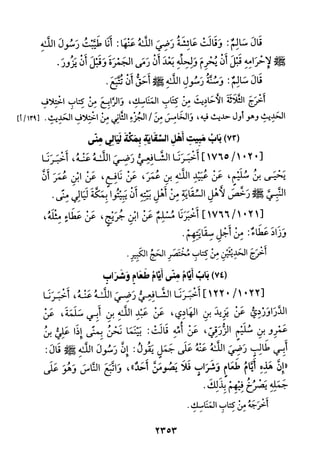 قَالَ سَالِمٌ: وَقَالَتْ عَائِشَةُ رَضِيَ اللَّهُ عَنْهَا: أَنَا طَيَّبْتُ رَسُولَ اللَّهِ
ﷺ لِإِحْرَامِهِ قَبْلَ أَنْ يُحْرِمَ، وَلِحِلِّهِ بَعْدَ أَنْ رَمَى الجَمْرَةَ وَقَبْلَ أَنْ يَزُورَ.
قَالَ سَالِمٌ: وَسُنَّةُ رَسُولِ اللَّهِ ﷺ أَحَقُّ أَنْ تُتَّبَعَ.
أَخْرَجَ الثَّلَاثَةَ الأَحَادِيثَ مِنْ كِتَابِ المَنَاسِكِ، وَالرَّابِعَ مِنْ كِتَابِ اخْتِلافِ
الحَدِيثِ وهو أول حديث فيه، وَالخَامِسَ مِنَ / الجُزْءِ الثَّانِي مِنْ اخْتِلافِ الحَدِيثِ. [١٣٩/أ]
(٧٣) بَابُ مَبِيتِ أَهْلِ السِّقَايَةِ بِمَكَّةَ لَيَالِي مِنًى
[١٠٢٠/ ١٧٦٥] أَخْبَرَنَا الشَّافِعِيُّ رَضِيَ اللَّهُ عَنْهُ، أَخْبَرَنَا
يَحْيَى بنُ سُلَيْمٍ، عَنْ عُبَيْدِ اللَّهِ بنِ عُمَرَ، عَنْ نَافِعٍ، عَنْ ابْنِ عُمَرَ أَنَّ
النَّبِيَّ ﷺ رَخَّصَ لأَهْلِ السِّقَايَةِ مِنْ أَهْلِ بَيْتِهِ أَنْ يَبِيتُوا بِمَكَّةَ لَيَالِيَ مِنًى.
[١٠٢١/ ١٧٦٦] أَخْبَرَنَا مُسْلِمٌ عَنْ ابْنِ جُرَيْجٍ، عَنْ عَطَاءٍ مِثْلَهُ،
وَزَادَ عَطَاءٌ: مِنْ أَجْلِ سِقَايَتِهِمْ.
أَخْرَجَ الحَدِيثَيْنِ مِنْ كِتَابِ مُخْتَصَرِ الحَجِّ الكَبِيرِ.
(٧٤) بَابُ أَيَّامُ مِنًى أَيَّامُ طَعَامٍ وَشَرَابٍ
[١٠٢٢/ ١٢٢٠] أَخْبَرَنَا الشَّافِعِيُّ رَضِيَ اللَّهُ عَنْهُ، أَخْبَرَنَا
الدَّرَاوَرْدِيُّ، عَنْ يَزِيدَ بنِ الهَادِي، عَنْ عَبْدِ اللَّهِ بنِ أَبِي سَلَمَةَ، عَنْ
عَمْرِو بنِ سُلَيْمٍ الزُّرَقِيِّ، عَنْ أُمِّهِ قَالَتْ: بَيْنَمَا نَحْنُ بِمِنًى إِذَا عَلِيُّ بنُ
أَبِي طَالِبٍ رَضِيَ اللَّهُ عَنْهُ عَلَى جَمَلٍ يَقُولُ: إِنَّ رَسُولَ اللَّهِ ﷺ قَالَ:
«إِنَّ هَذِهِ أَيَّامُ طَعَامٍ وَشَرَابٍ فَلَا يَصُومَنَّ أَحَدٌ»، وَاتَّبَعَ النَّاسَ وَهُوَ عَلَى
جَمَلِهِ يَصْرُخُ فِيْهِمْ بِذَلِكَ.
أَخْرَجَهُ مِنْ كِتَابِ المَنَاسِكِ.
٢٣٥٣